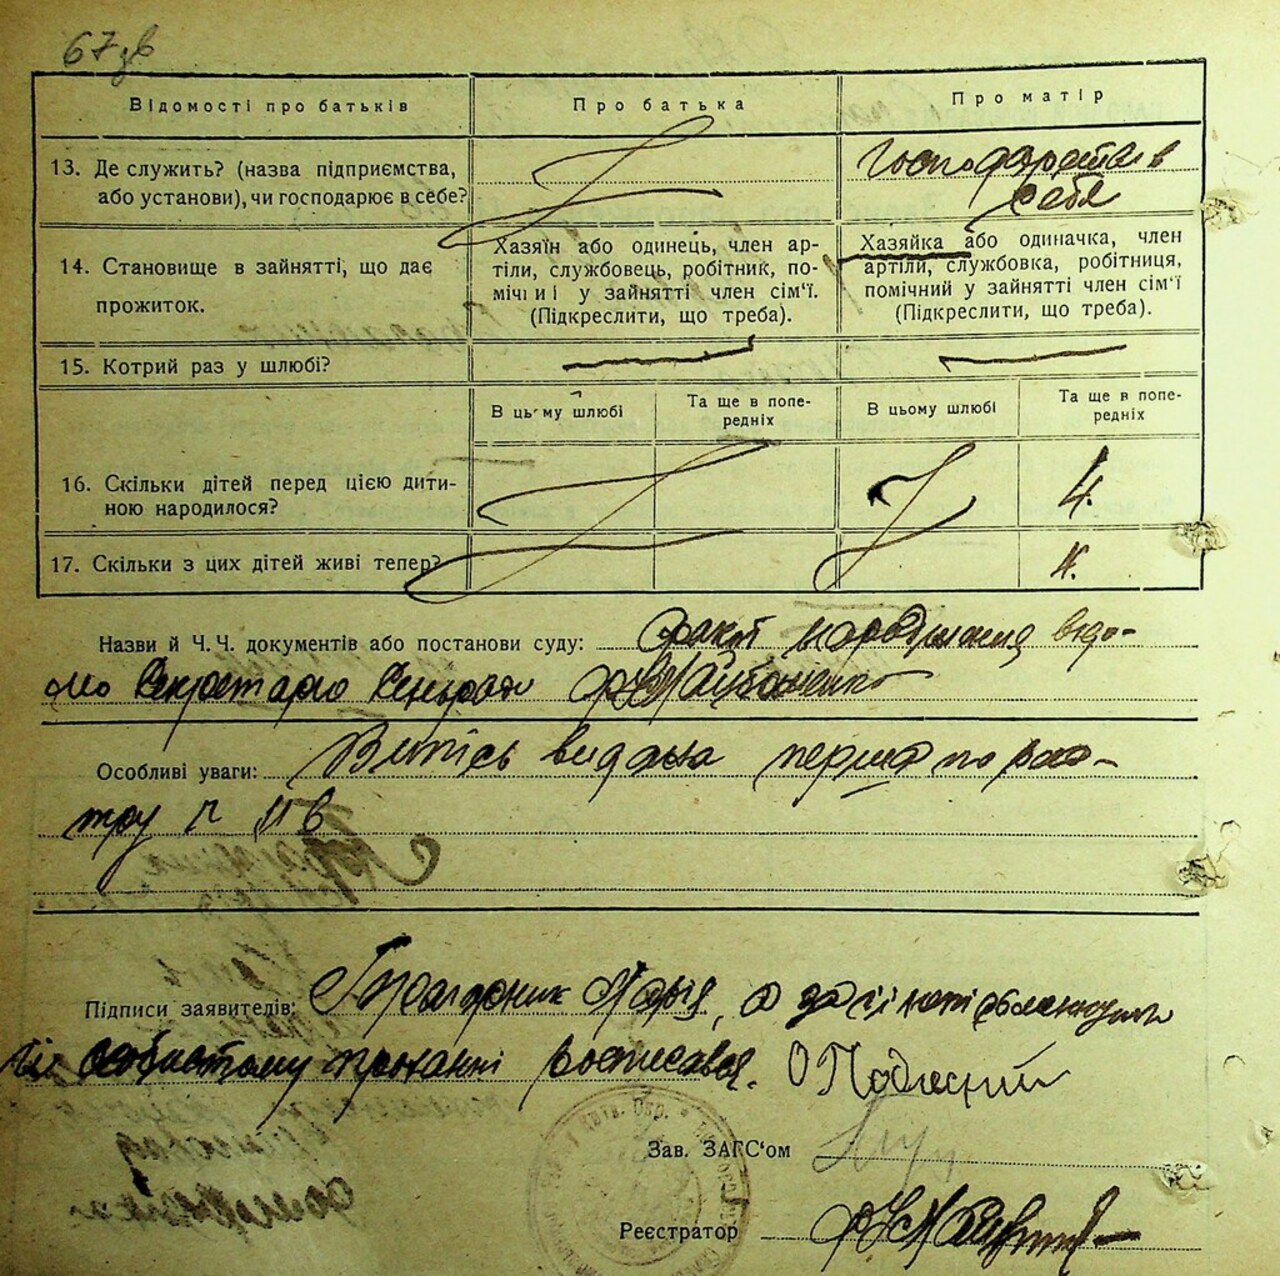 67 зв
Відомості про батьків
Про батька
Про матір
13. Де служить? (назва підприємства,
або установи), чи господарює в себе?
Господарює в
себя
14. Становище в зайнятті, що дає
прожиток.
Хазяїн або одинець, член ар-
тіли, службовець, робітник, по-
мічний у зайнятті член сім'ї.
(Підкреслити, що треба).
Хазяйка або одиначка, член
артіли, службовка, робітниця,
помічний у зайнятті член сім'ї
(Підкреслити, що треба).
15. Котрий раз у шлюбі?
В цьому шлюбі
Та ще в попе-
редніх
В цьому шлюбі
Та ще в попе-
редніх
16. Скільки дітей перед цією дити-
ною народилося?
4.
17. Скільки з цих дітей живі тепер?
4.
Назви й Ч. Ч. документів або постанови суду: факт народження відо-
мо Секретарю Сільради
Особливі уваги: Випись видана перша по реє-
тру
Підписи заявителів: Марія, а за її неписьменну
особистому проханні росписався. О Подлесний
Зав. ЗАГС'ом
Реєстратор